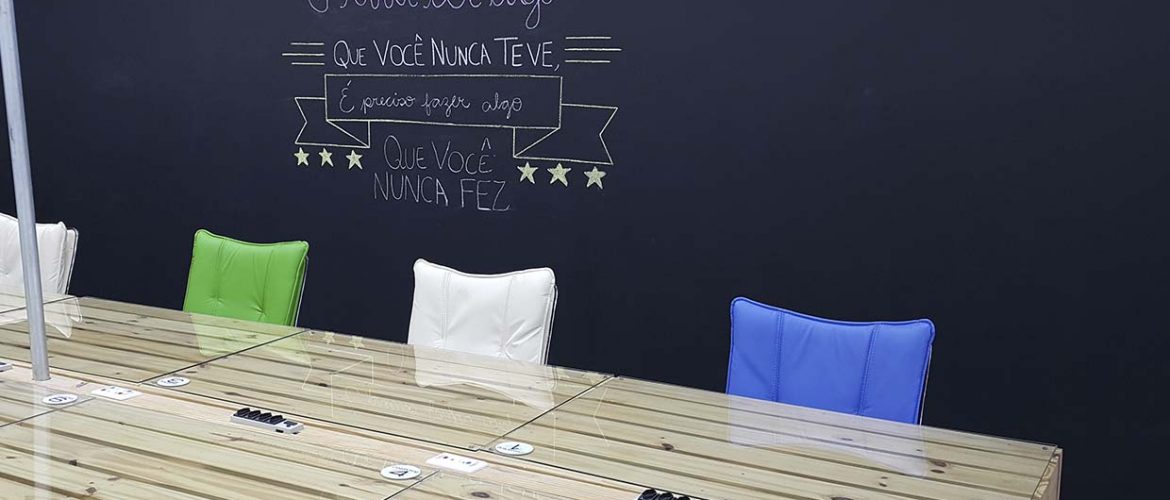 QUE VOCÊ NUNCA TEVE,
É preciso fazer algo
QUE VOCÊ
NUNCA FEZ